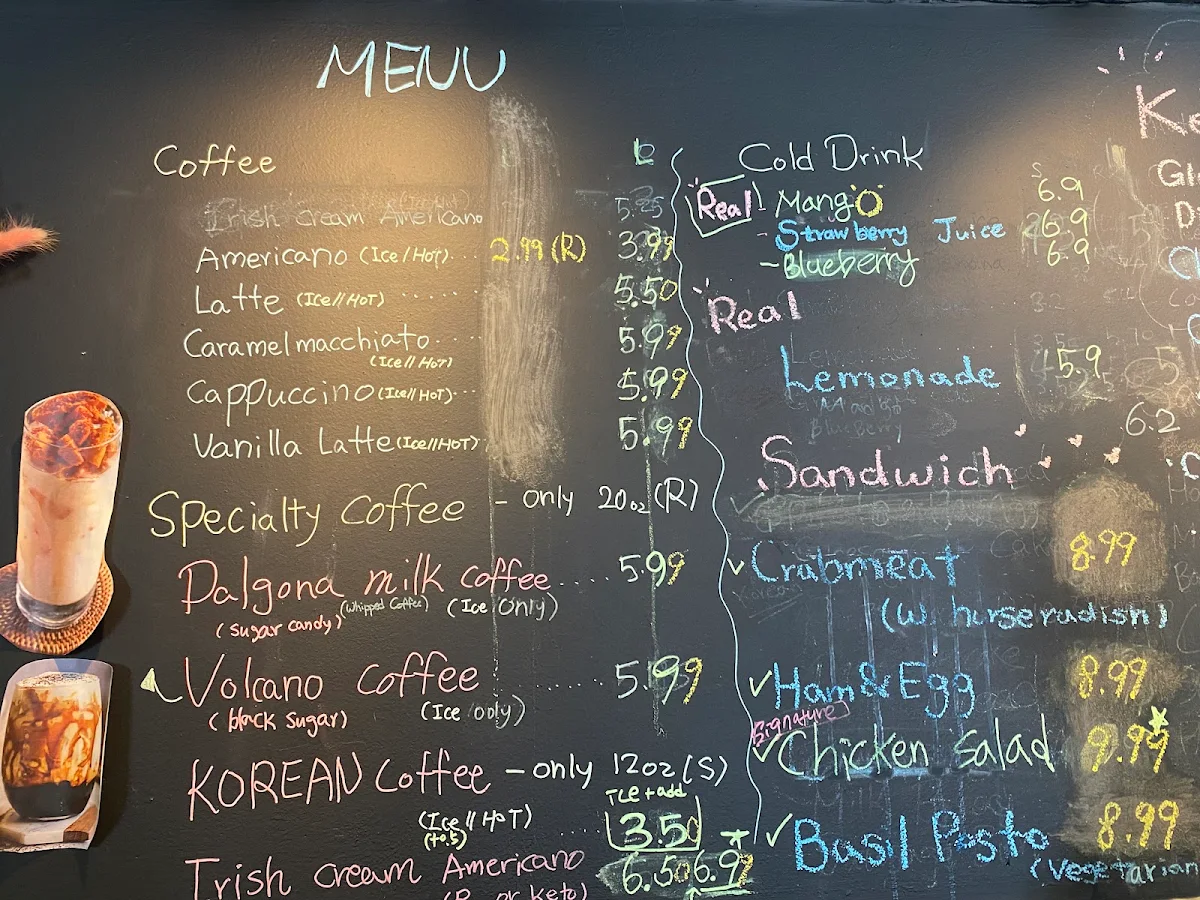 MENU
Coffee
L
Irish cream Americano 5.25
Americano (Ice/Hot).... 2.99 (R) 3.99
Latte (Ice//HoT) ...... 5.50
Caramel macchiato. 5.99
(Ice//HoT)
Cappuccino (Ice//HoT)... 5.99
Vanilla Latte (Ice//HoT) 5.99
Specialty coffee - only 20oz (R)
Dalgona milk coffee.... 5.99
(sugar candy) (Whipped Coffee) (Ice only)
Volcano coffee ...... 5.99
(black sugar) (Ice only)
KOREAN coffee - only 12oz (S)
ICE + add
(Ice//HoT) .... 3.50
(+0.5)
Irish cream Americano 6.50 6.99
(R or keto)
Cold Drink
S
Real - Mango 6.9
- Strawberry Juice 6.9
- Blueberry 6.9
Real
Lemonade 5.9
Mango
Blueberry
6.2
Sandwich
✓ Crabmeat 8.99
(w/ horseradish)
✓ Ham & Egg 8.99
Signature
✓ Chicken Salad 9.99
✓ Basil Pesto 8.99
(Vegetarian